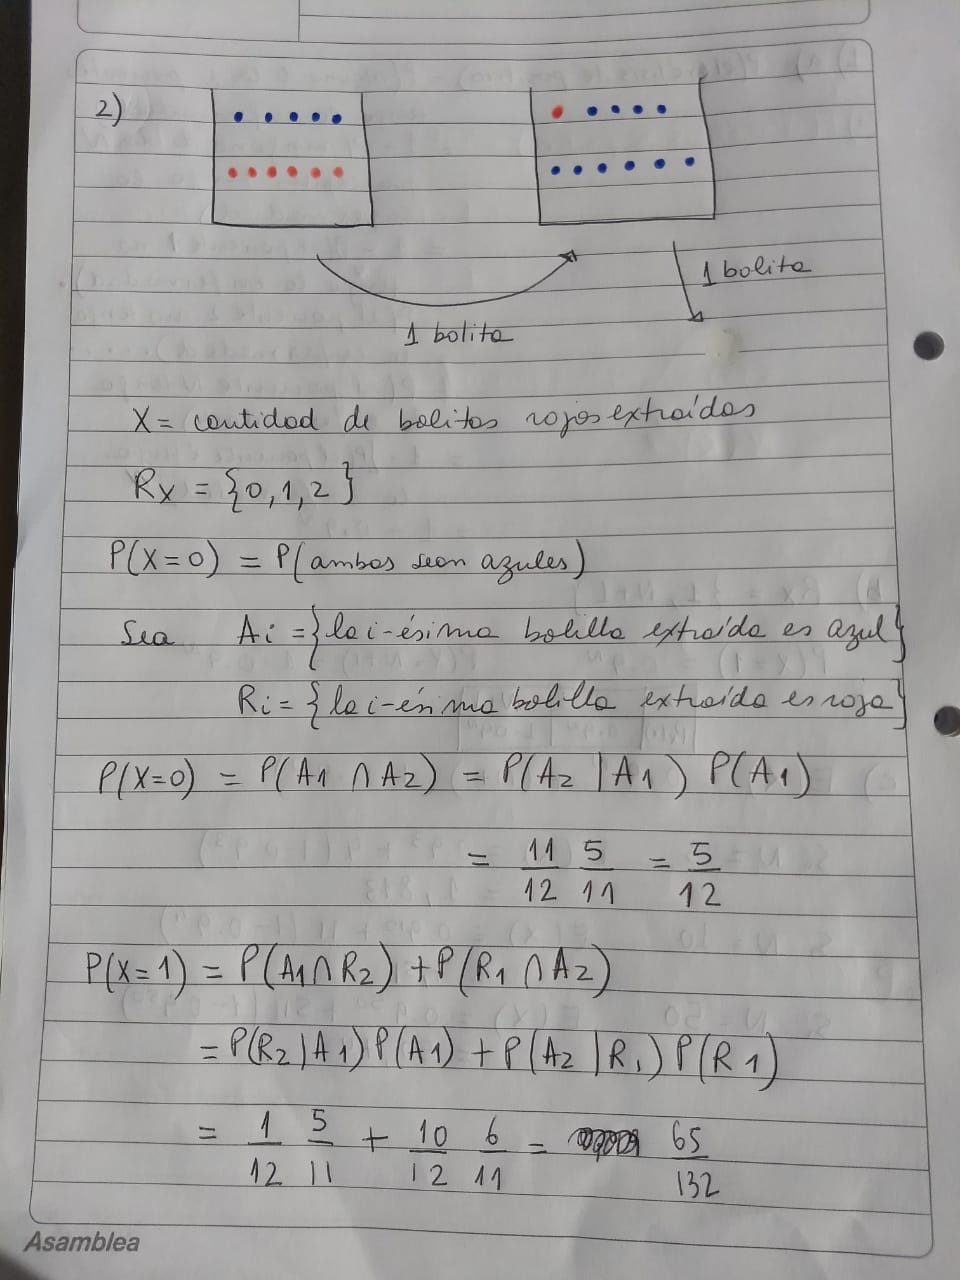 2)
1 bolita
1 bolita
X = cantidad de bolitas rojas extraídas
Rx = {0, 1, 2}
P(X=0) = P(ambas sean azules)
Sea Ai = {la i-ésima bolilla extraída es azul}
Ri = {la i-ésima bolilla extraída es roja}
P(X=0) = P(A1 ∩ A2) = P(A2 | A1) P(A1)
= 11/12 5/11 = 5/12
P(X=1) = P(A1 ∩ R2) + P(R1 ∩ A2)
= P(R2 | A1) P(A1) + P(A2 | R1) P(R1)
= 1/12 5/11 + 10/12 6/11 = 65/132
Asamblea